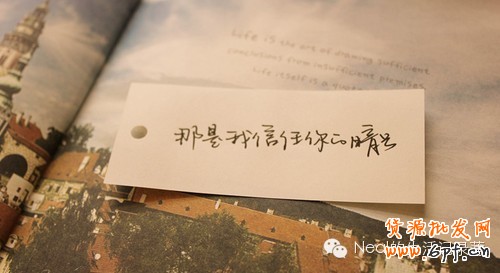 Life is the art of drawing sufficient
conclusions from insufficient premises
Life itself is a
那是我信任你的
货源批发网